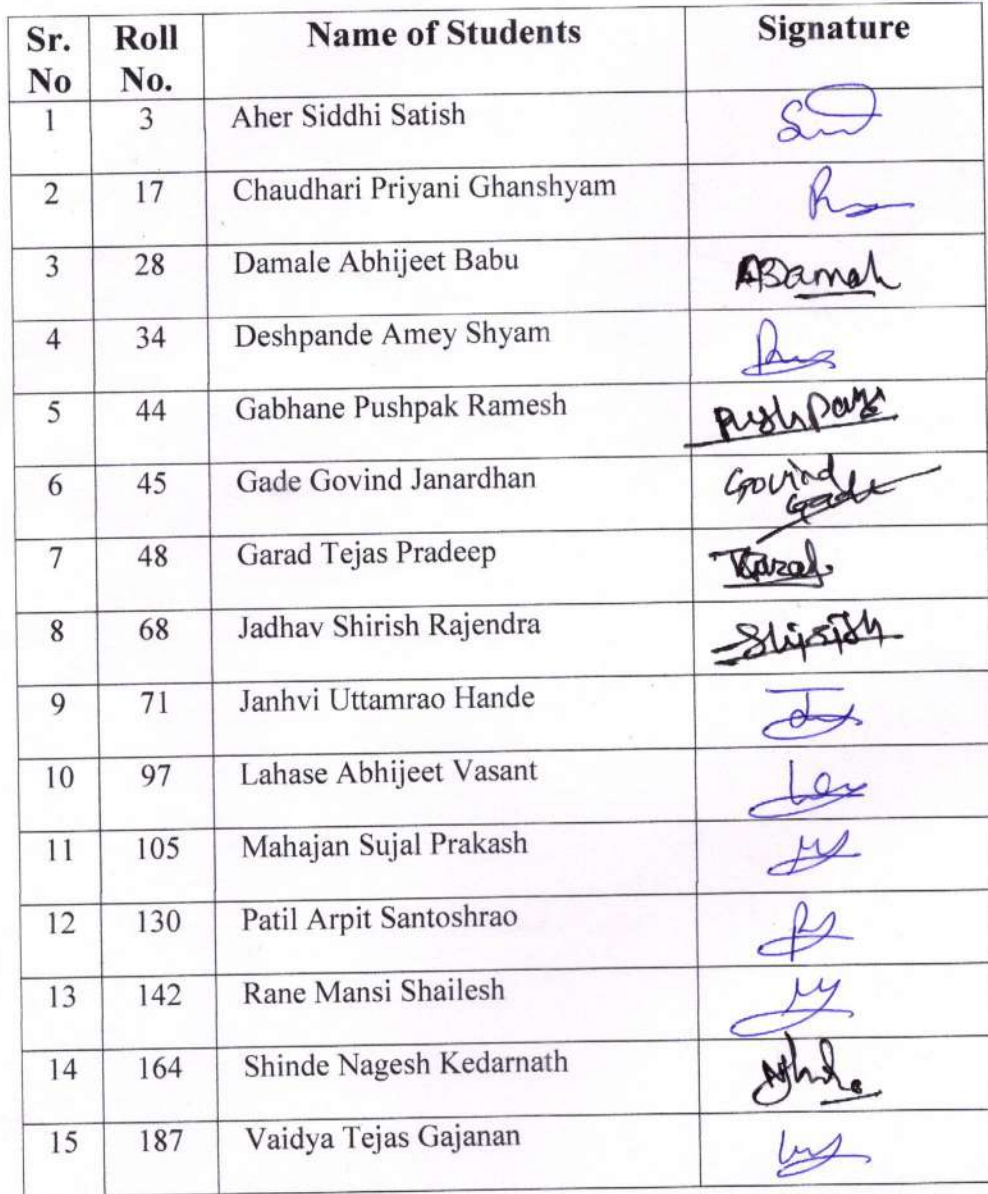 Sr. No Roll No. Name of Students Signature
1 3 Aher Siddhi Satish
2 17 Chaudhari Priyani Ghanshyam
3 28 Damale Abhijeet Babu ABamah
4 34 Deshpande Amey Shyam
5 44 Gabhane Pushpak Ramesh
6 45 Gade Govind Janardhan Govind Gade
7 48 Garad Tejas Pradeep
8 68 Jadhav Shirish Rajendra Shirish
9 71 Janhvi Uttamrao Hande
10 97 Lahase Abhijeet Vasant
11 105 Mahajan Sujal Prakash
12 130 Patil Arpit Santoshrao
13 142 Rane Mansi Shailesh
14 164 Shinde Nagesh Kedarnath
15 187 Vaidya Tejas Gajanan